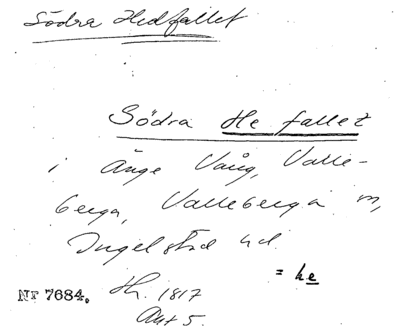 Södra Hedfallet
Södra He fallet
i Änge Vång, Valle-
berga, Valleberga m,
Ingelstad hd
= he
Nr 7684. Hh. 1817
Akt 5.